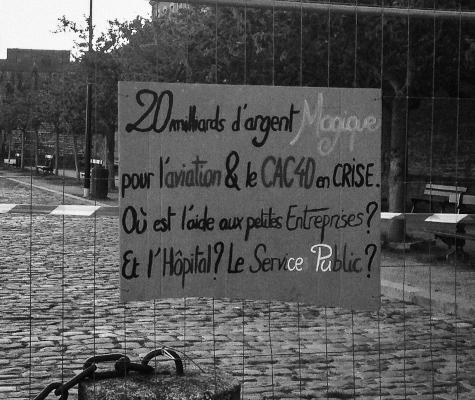 20 milliards d'argent Magique
pour l'aviation & le CAC40 en CRISE.
Où est l'aide aux petites Entreprises?
Et l'Hôpital? Le Service Public?